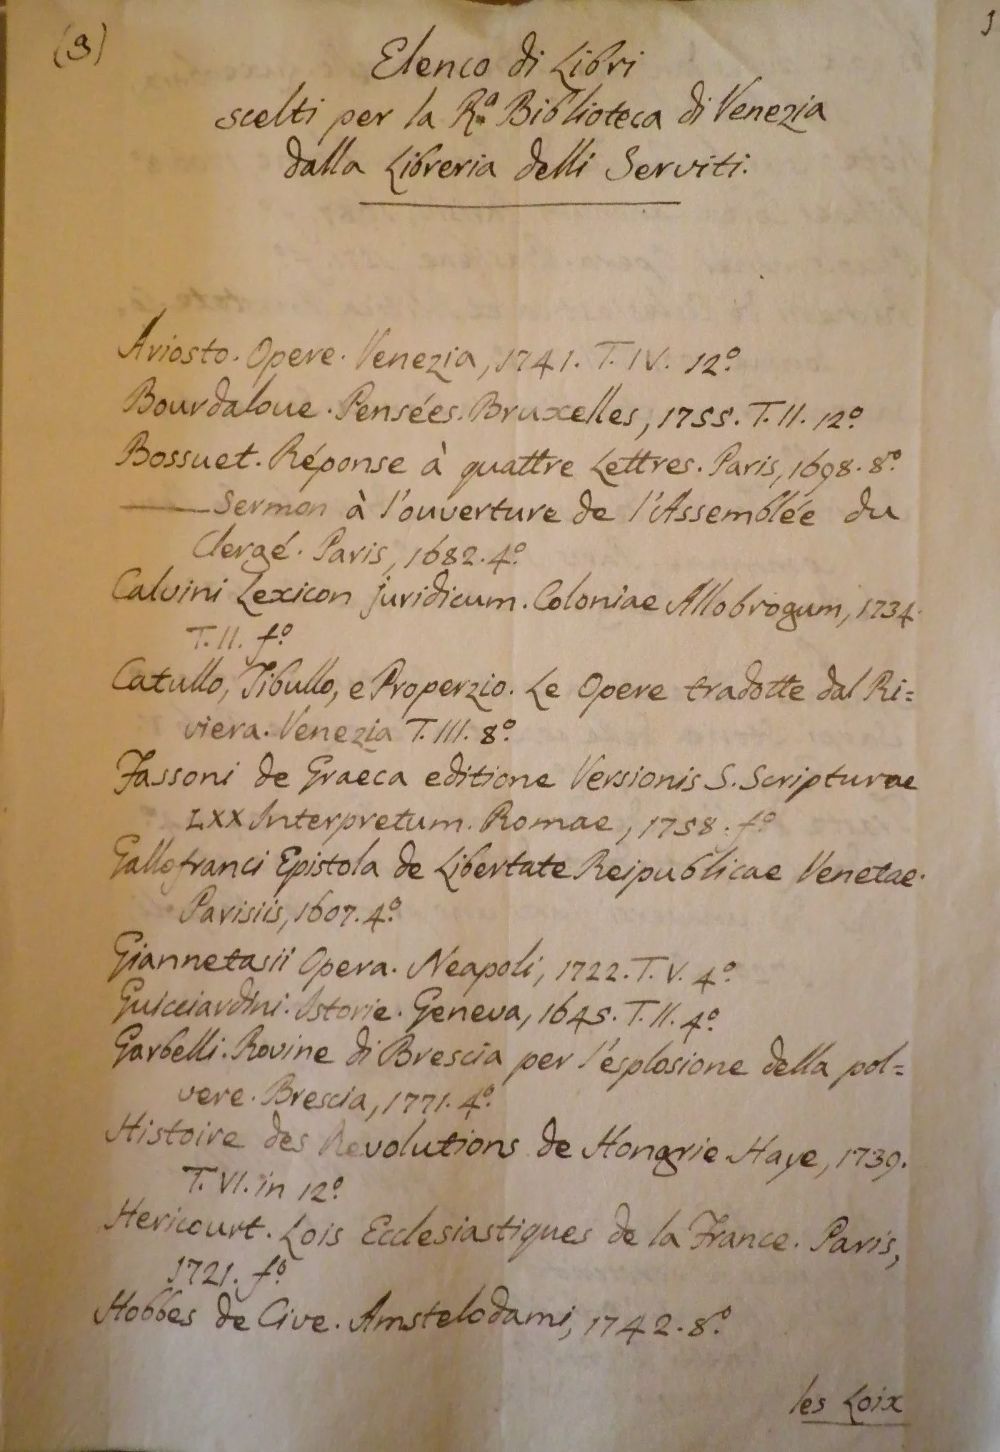 (9)
Elenco di Libri
scelti per la R.a Biblioteca di Venezia
dalla Libreria delli Serviti.
Ariosto. Opere. Venezia, 1741. T. IV. 12.o
Bourdaloue. Pensées. Bruxelles, 1755. T. II. 12.o
Bossuet. Réponse à quattre Lettres. Paris, 1698. 8.o
—— Sermon à l'ouverture de l'Assemblée du
Clergé. Paris, 1682. 4.o
Calvini Lexicon juridicum. Coloniae Allobrogum, 1734.
T. II. f.o
Catullo, Tibullo, e Properzio. Le Opere tradotte dal Ri=
viera. Venezia T. III. 8.o
Fassoni de Graeca editione Versionis S. Scripturae
LXX Interpretum. Romae, 1758. f.o
Gallofranci Epistola de Libertate Reipublicae Venetae.
Parisiis, 1607. 4.o
Giannetasii Opera. Neapoli, 1722. T. V. 4.o
Guicciardini. Istorie. Geneva, 1645. T. II. 4.o
Garbelli. Rovine di Brescia per l'esplosione della pol=
vere. Brescia, 1771. 4.o
Histoire des Revolutions de Hongrie Haye, 1739.
T. VI. in 12.o
Hericourt. Lois Ecclesiastiques de la France. Paris,
1721. f.o
Hobbes de Cive. Amstelodami, 1742. 8.o
les Loix